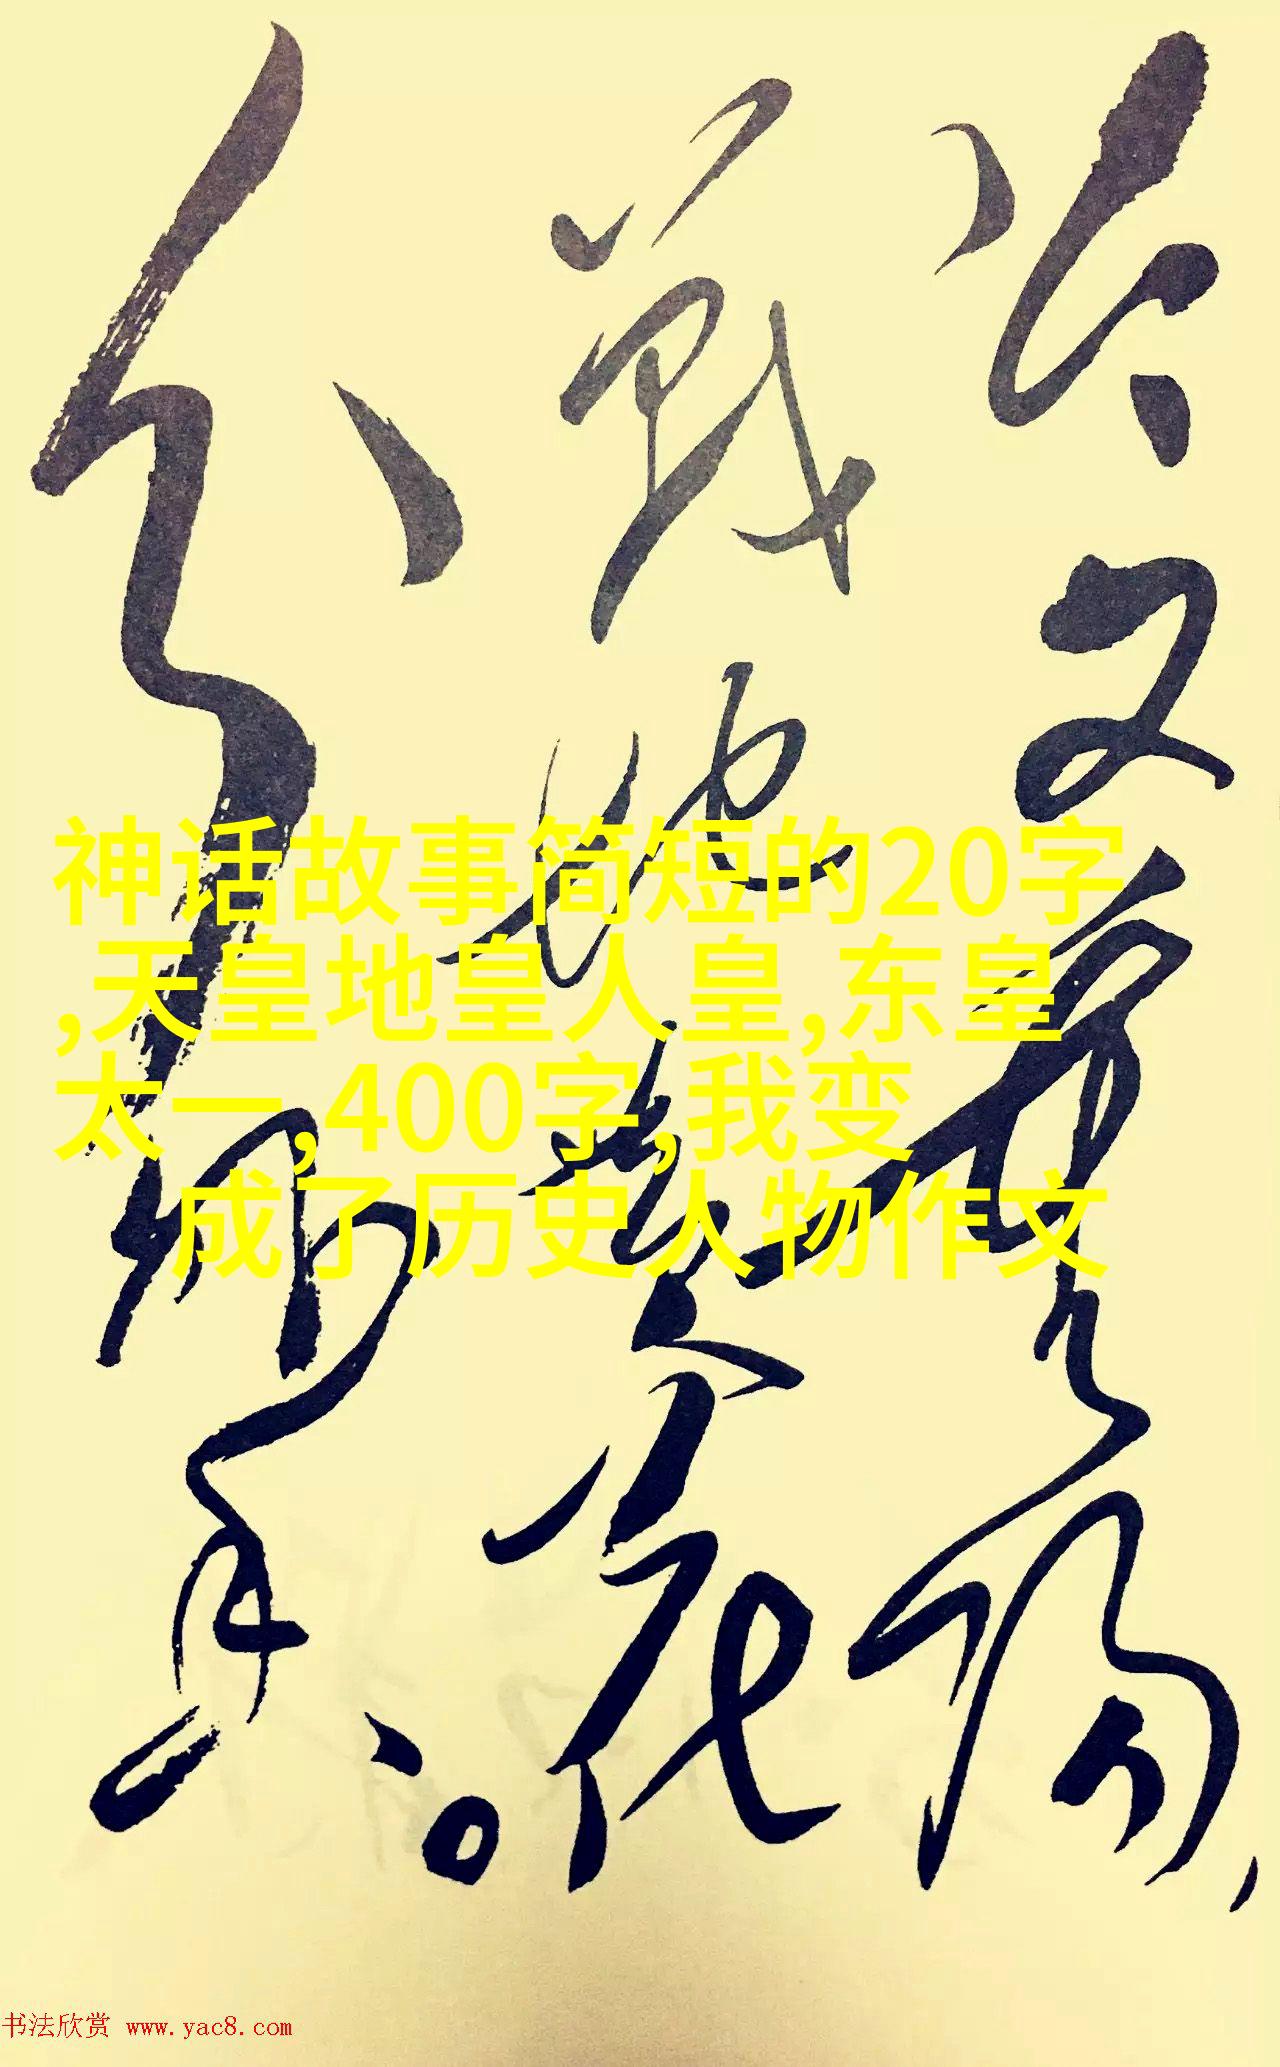 今又重阳，
战地黄花
分外香。
神话故事简短的20字
,天皇地皇人皇,东皇
太一,400字,我变
成了历史人物作文
书法欣赏 www.yac8.com